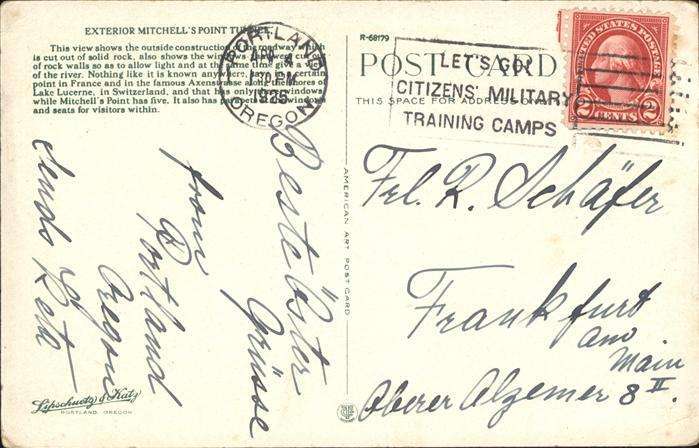 EXTERIOR MITCHELL'S POINT TUNNEL
This view shows the outside construction of the roadway which
is cut out of solid rock, also shows the windows
of rock walls so as to allow light and at the same time give a view
of the river. Nothing like it is known anywhere, save at a certain
point in France and in the famous Axenstrasse along the shores of
Lake Lucerne, in Switzerland, and that has only three windows
while Mitchell's Point has five. It also has windows
and seats for visitors within.
PORTLAND
APR 4
PM
OREGON
Beste Oster
Grüsse
from
Portland
Oregon
sends Reta
Lipschuetz & Katz
PORTLAND, OREGON
AMERICAN ART POST CARD
R-68179
POST CARD
THIS SPACE FOR ADDRESS ONLY
LET'S GO!
CITIZENS' MILITARY
TRAINING CAMPS
UNITED STATES POSTAGE
2 CENTS 2
Frl. R. Schäfer
Frankfurt
am
Main
Oberer Alzemer 8 II.